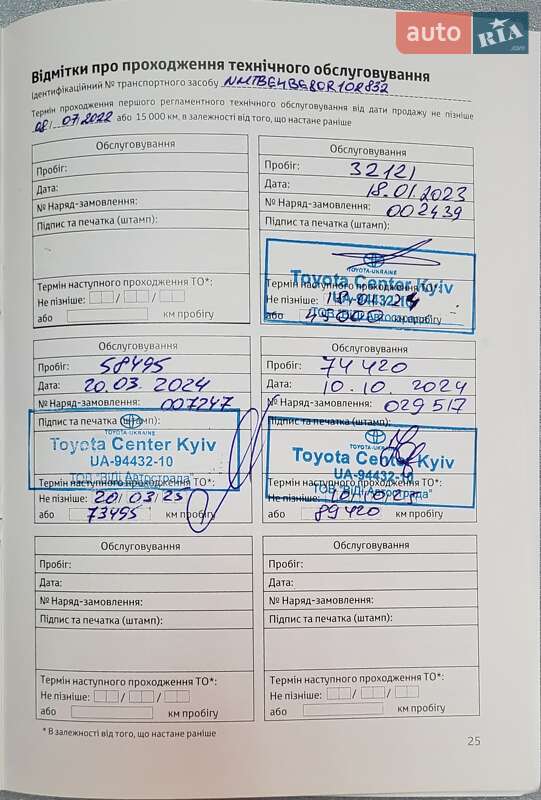 auto RIA .com
Відмітки про проходження технічного обслуговування
Ідентифікаційний № транспортного засобу NMTBE4BE80R102832
Термін проходження першого регламентного технічного обслуговування від дати продажу не пізніше
08/ 07.2022 або 15 000 км, в залежності від того, що настане раніше
Обслуговування
Пробіг:
Дата:
№ Наряд-замовлення:
Підпис та печатка (штамп):
Термін наступного проходження ТО*:
Не пізніше: / /
або км пробігу
Обслуговування
Пробіг: 32121
Дата: 18.01.2023
№ Наряд-замовлення: 002439
Підпис та печатка (штамп):
TOYOTA-UKRAINE
Toyota Center Kyiv
UA-94432-10
Термін наступного проходження ТО
Не пізніше:
або км пробігу
Обслуговування
Пробіг: 58495
Дата: 20.03.2024
№ Наряд-замовлення: 007247
Підпис та печатка (штамп):
TOYOTA-UKRAINE
Toyota Center Kyiv
UA-94432-10
ТОВ "ВіДі Автострада"
Термін наступного проходження ТО*:
Не пізніше: 20/03/25
або 73495 км пробігу
Обслуговування
Пробіг: 74420
Дата: 10.10.2024
№ Наряд-замовлення: 029517
Підпис та печатка (штамп):
TOYOTA-UKRAINE
Toyota Center Kyiv
UA-94432-10
ТОВ "ВіДі Автострада"
Термін наступного проходження ТО*:
Не пізніше:
або 89420 км пробігу
Обслуговування
Пробіг:
Дата:
№ Наряд-замовлення:
Підпис та печатка (штамп):
Термін наступного проходження ТО*:
Не пізніше: / /
або км пробігу
Обслуговування
Пробіг:
Дата:
№ Наряд-замовлення:
Підпис та печатка (штамп):
Термін наступного проходження ТО*:
Не пізніше: / /
або км пробігу
* В залежності від того, що настане раніше
25